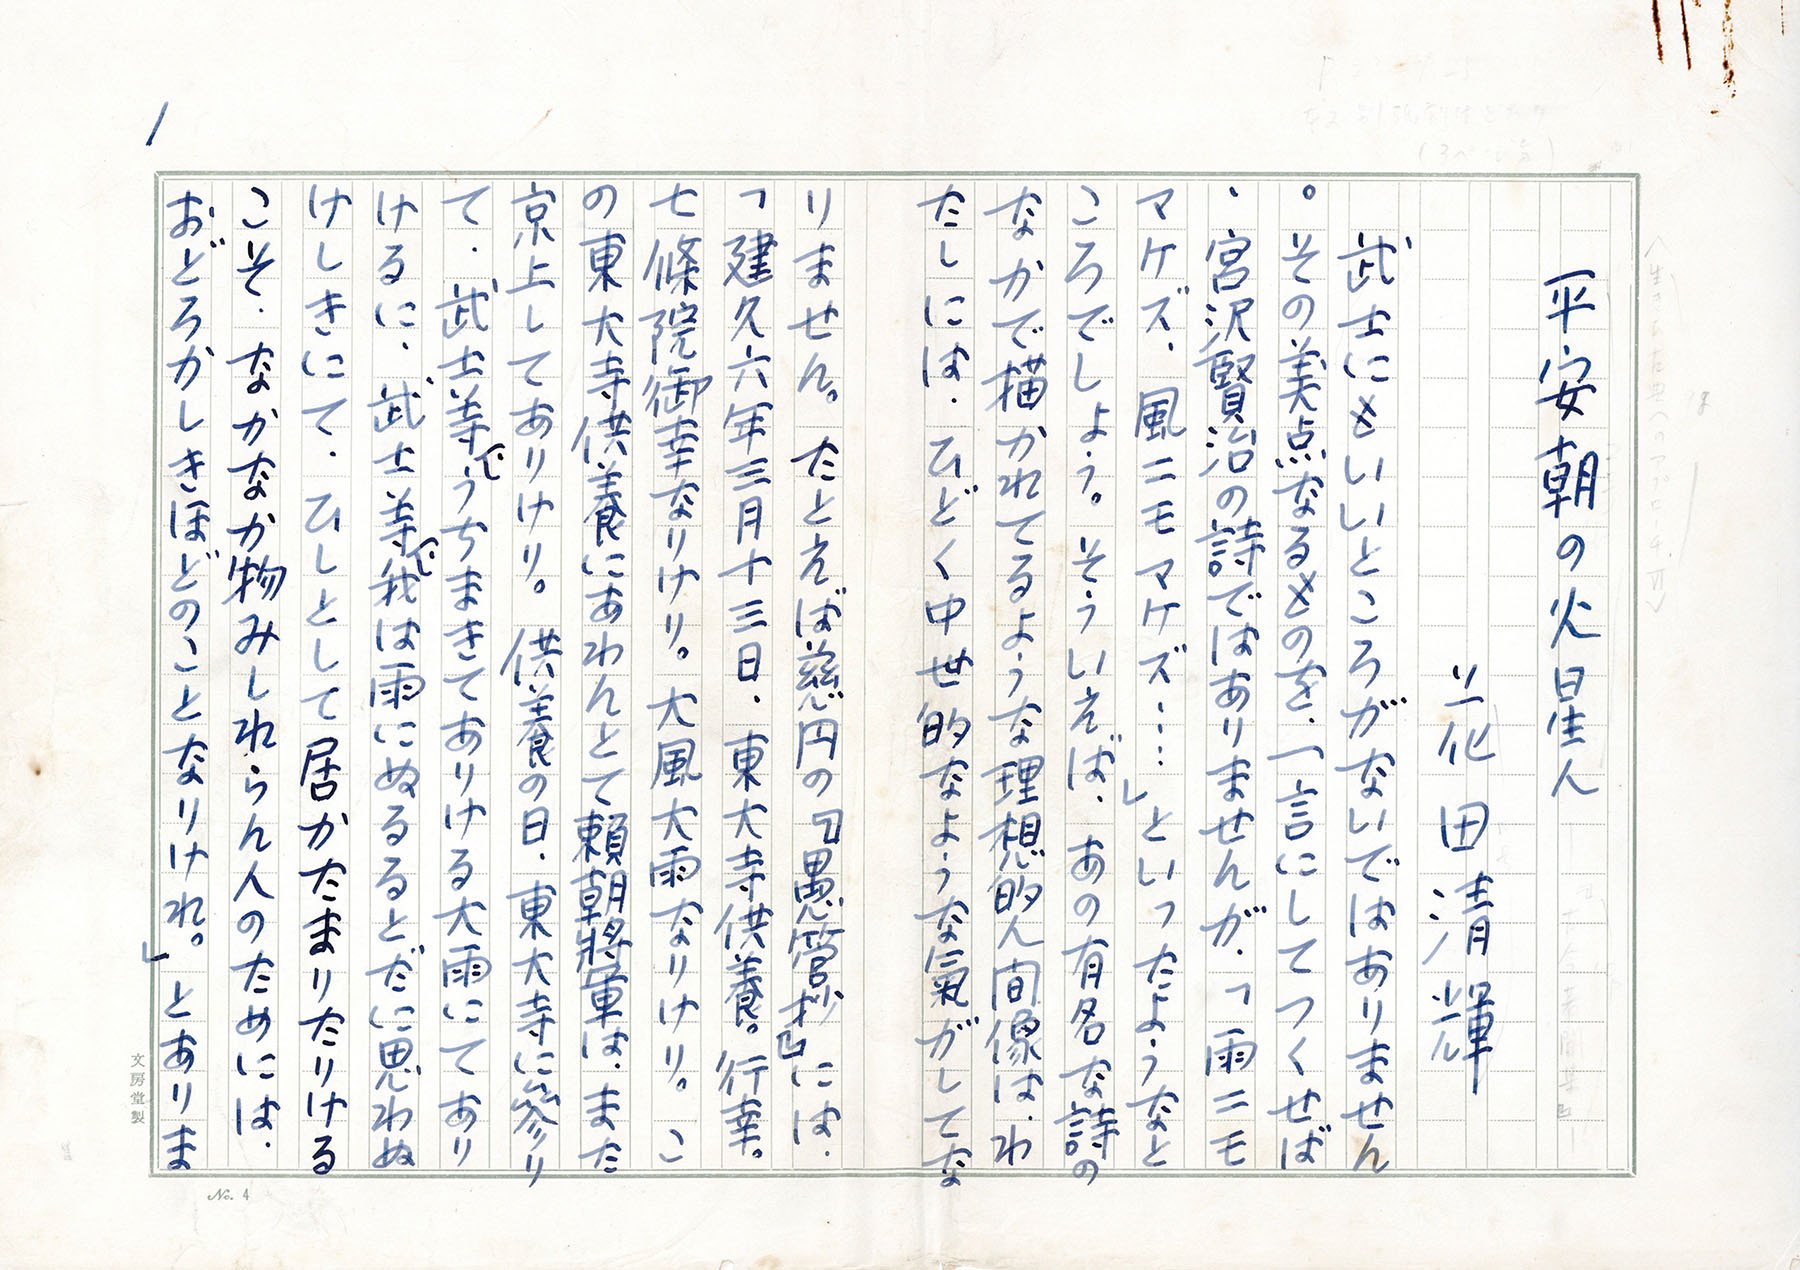 平安朝の火星人
花田清輝
武士にもいいところがないではありません
。その美点なるものを、一言にしてつくせば
、宮沢賢治の詩ではありませんが、「雨ニモ
マケズ、風ニモマケズ……」といったようなと
ころでしょう。そういえば、あの有名な詩の
なかで描かれてるような理想的人間像は、わ
たしには、ひどく中世的なような氣がしてな
りません。たとえば慈円の『愚管抄』には、
「建久六年三月十三日、東大寺供養。行幸。
七條院御幸なりけり。大風大雨なりけり。こ
の東大寺供養にあわんとて頼朝將軍は、また
京上してありけり。供養の日、東大寺に參り
て、武士等うちまきてありける大雨にてあり
けるに、武士等我は雨にぬるるとだに思わぬ
けしきにて、ひしとして居かたまりたりける
こそ、なかなか物みしれらん人のためには、
おどろかしきほどのことなりけれ。」とありま
1
文房堂製
No. 4